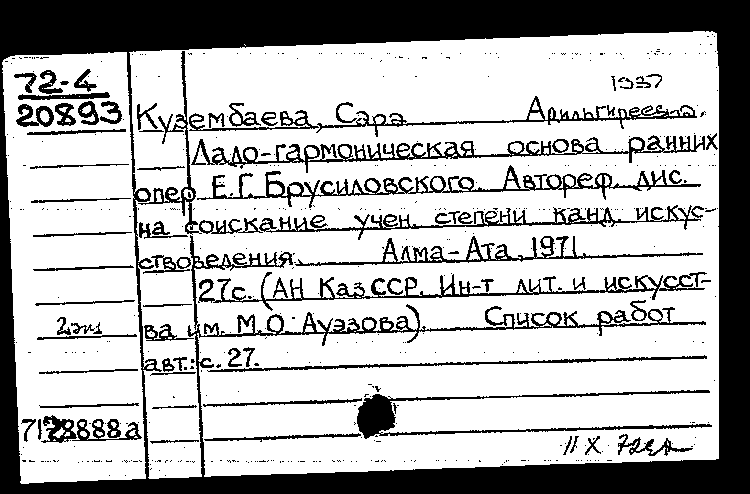 72-4
20893
1937
Кузембаева, Сара Арильгиреевна.
Ладо-гармоническая основа ранних
опер Е.Г. Брусиловского. Автореф. дис.
на соискание учен. степени канд. искус-
ствоведения. Алма-Ата, 1971.
27с. (АН КазССР. Ин-т лит. и искусст-
2 экз
ва им. М.О. Ауэзова). Список работ
авт.: с. 27.
11 X 72